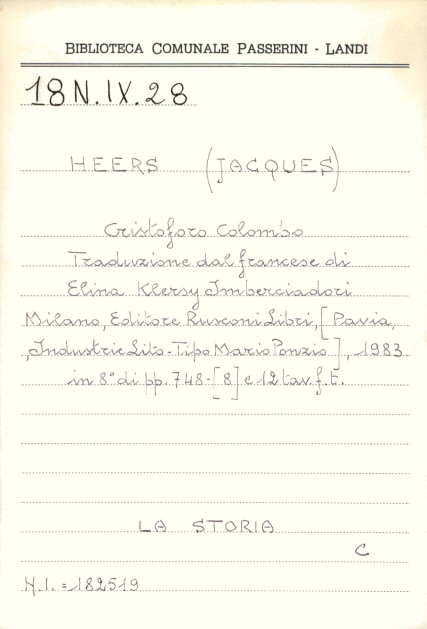 BIBLIOTECA COMUNALE PASSERINI - LANDI
18 N. IX. 28
HEERS (JACQUES)
Cristoforo Colombo
Traduzione dal francese di
Elina Klersy Imberciadori
Milano, Editore Rusconi Libri, [Pavia,
, Industrie Lito-Tipo Mario Ponzio], 1983
in 8° di pp. 748-[8] e 12 tav. f. t.
LA STORIA
C
N. I. = 182519